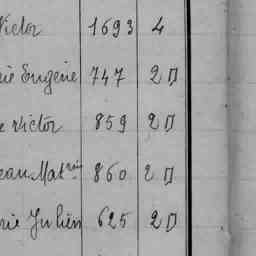 Victor 1693 4
rie Eugène 747 2 D
e Victor 859 2 D
eau Mat^rin 860 2 D
rie Julien 625 2 D